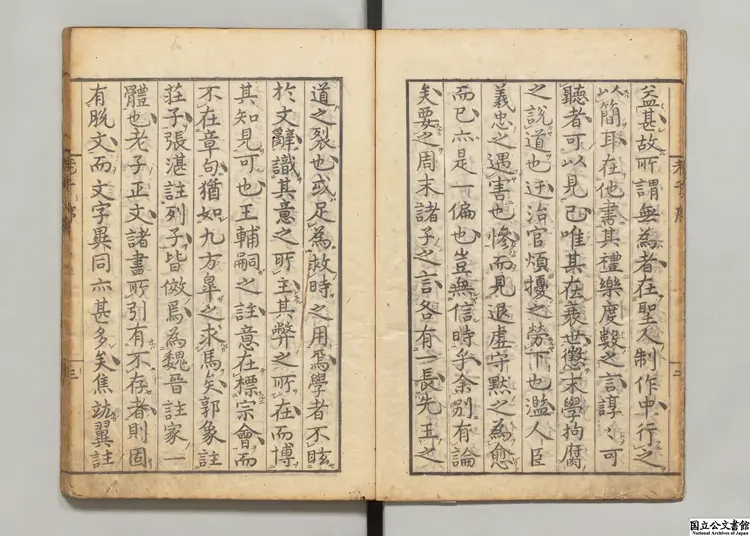 益甚故所謂無為者在聖人制作中行之
以簡耳在他書其禮樂度數之言諄〻可
聽者可以見已唯其在衰世懲末學拘腐
之說道也迂治官煩擾之勞下也濫人臣
義忠之遇害也慘而見退虛守默之為愈
而已亦是一偏也豈無信時乎余別有論
矣要之周末諸子之言各有一長先王之
道之裂也或足為救時之用焉學者不眩
於文辭識其意之所主其弊之所在而博
其知見可也王輔嗣之註意在標宗會而
不在章句猶如九方皐之求馬矣郭象註
莊子張湛註列子皆倣焉為魏晉註家一
體也老子正文諸書所引有不存者則固
有脫文而文字異同亦甚多矣焦竑翼註
老子序
二
三
国立公文書館
National Archives of Japan